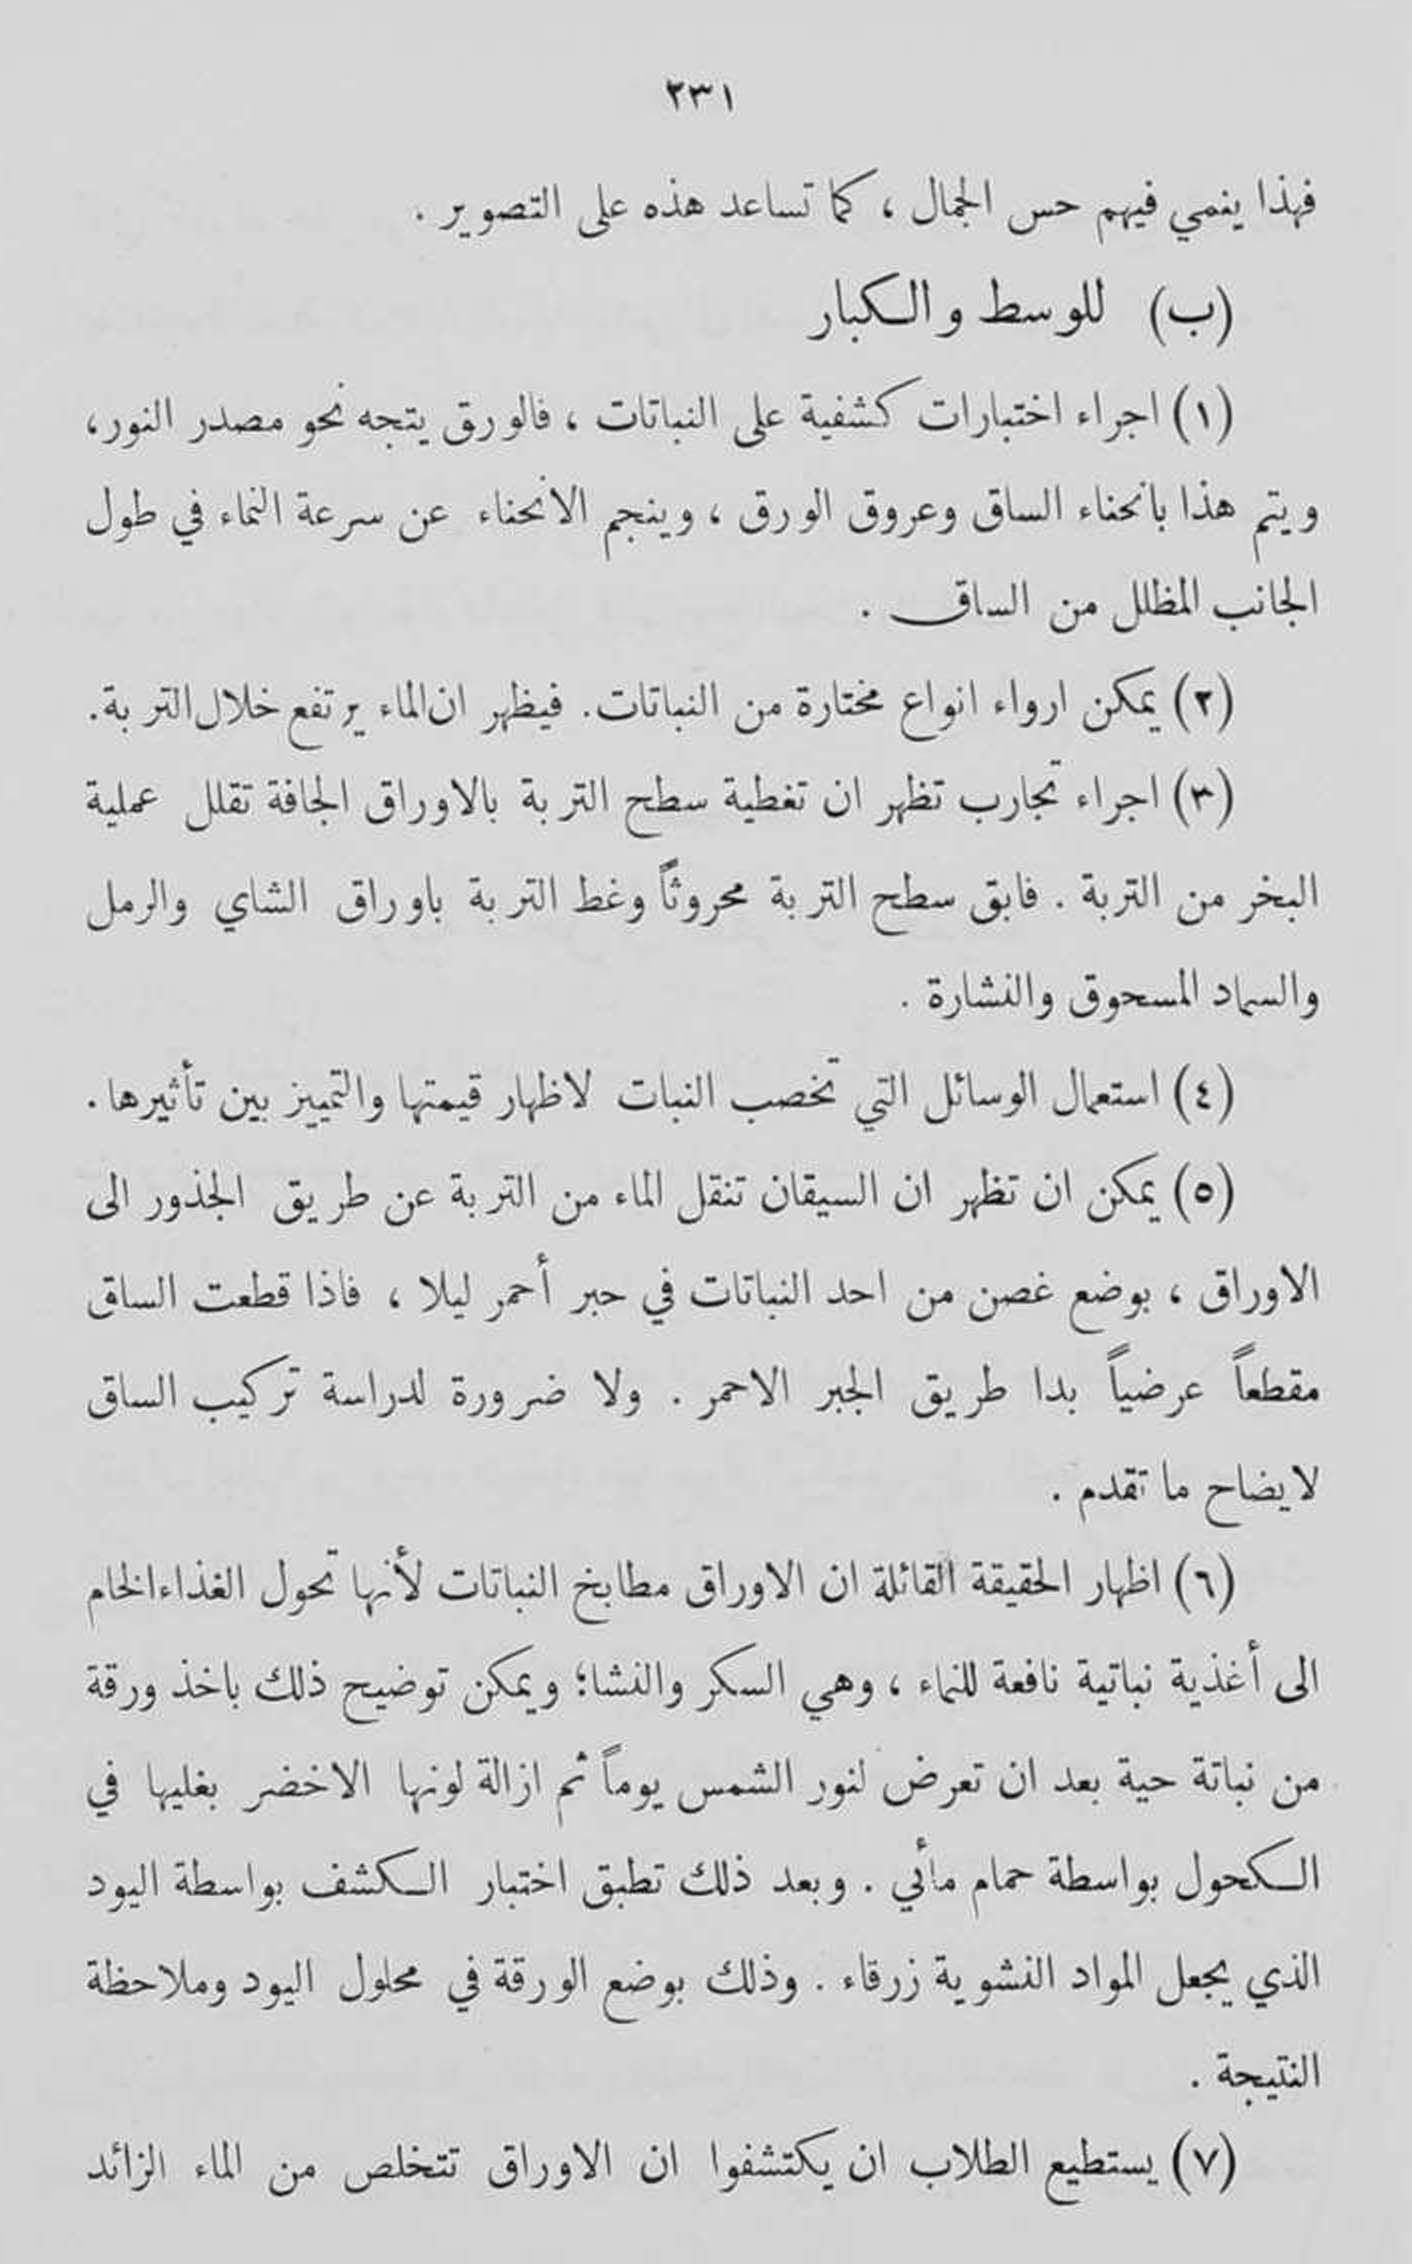 ٢٣١
فهذا ينمي فيهم حس الجمال ، كما تساعد هذه على التصوير .
(ب) للوسط والكبار
(١) اجراء اختبارات كشفية على النباتات ، فالورق يتجه نحو مصدر النور،
ويتم هذا بانحناء الساق وعروق الورق ، وينجم الانحناء عن سرعة النماء في طول
الجانب المظلل من الساق .
(٢) يمكن ارواء انواع مختارة من النباتات. فيظهر ان الماء يرتفع خلال التربة.
(٣) اجراء تجارب تظهر ان تغطية سطح التربة بالاوراق الجافة تقلل عملية
البخر من التربة . فابق سطح التربة محروثاً وغط التربة باوراق الشاي والرمل
والسماد المسحوق والنشارة .
(٤) استعمال الوسائل التي تخصب النبات لاظهار قيمتها والتمييز بين تأثيرها.
(٥) يمكن ان تظهر ان السيقان تنقل الماء من التربة عن طريق الجذور الى
الاوراق ، بوضع غصن من احد النباتات في حبر أحمر ليلا ، فاذا قطعت الساق
مقطعاً عرضياً بدا طريق الحبر الاحمر . ولا ضرورة لدراسة تركيب الساق
لايضاح ما تقدم .
(٦) اظهار الحقيقة القائلة ان الاوراق مطابخ النباتات لأنها تحول الغذاء الخام
الى أغذية نباتية نافعة للنماء ، وهي السكر والنشا؛ ويمكن توضيح ذلك باخذ ورقة
من نباتة حية بعد ان تعرض لنور الشمس يوماً ثم ازالة لونها الاخضر بغليها في
الكحول بواسطة حمام مأئي . وبعد ذلك تطبق اختبار الكشف بواسطة اليود
الذي يجعل المواد النشوية زرقاء . وذلك بوضع الورقة في محلول اليود وملاحظة
النتيجة .
(٧) يستطيع الطلاب ان يكتشفوا ان الاوراق تتخلص من الماء الزائد